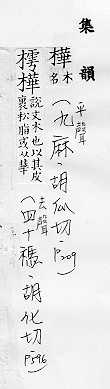 集韻
樺 木名
(九麻·胡瓜切·P209
平聲
樗樺 說文木也以其皮裹松脂或从華
(四十禡·胡化切
去聲
P596)